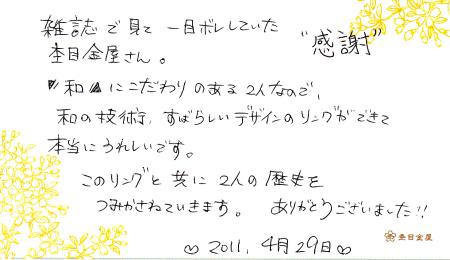 雑誌で見て一目ボレしていた
杢目金屋さん。
"感謝"
"和"にこだわりのある2人なので、
和の技術、すばらしいデザインのリングができて
本当にうれしいです。
このリングと共に2人の歴史を
つみかさねていきます。 ありがとうございました!!
♡ 2011, 4月29日 ♡
杢目金屋